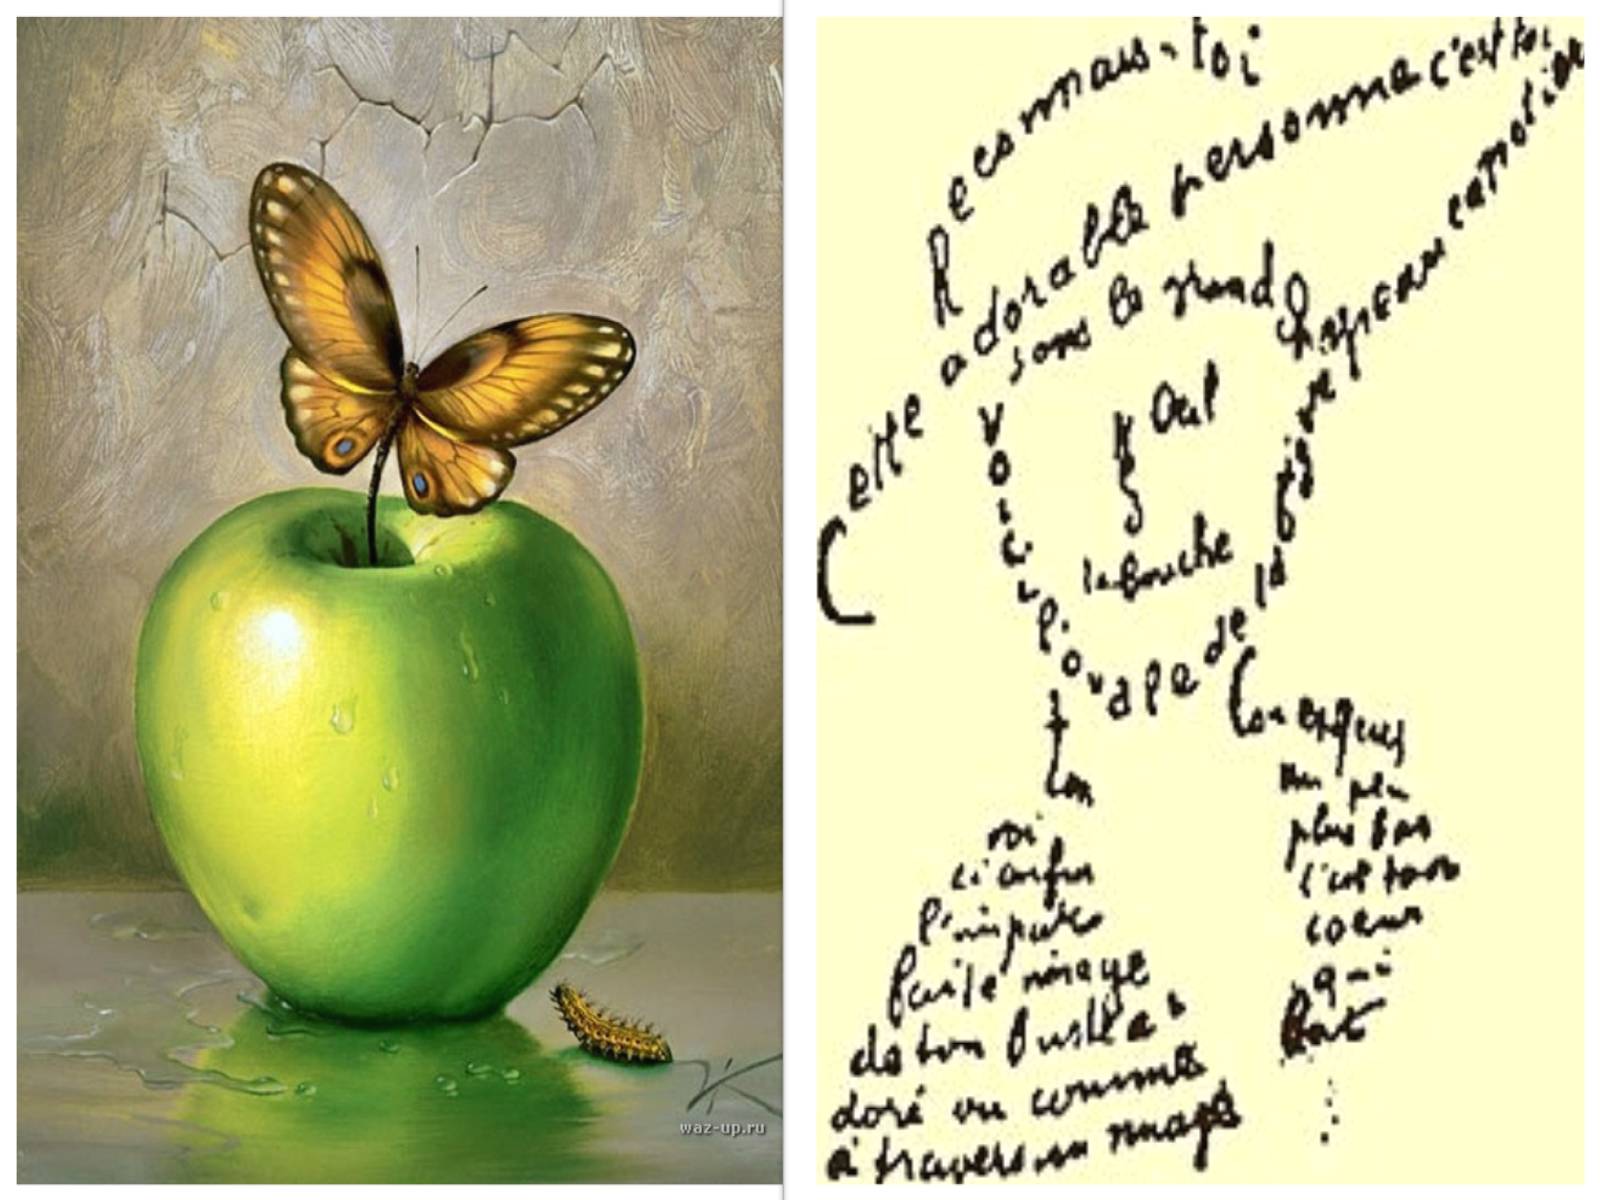 waz-up.ru
Reconnais-toi
Cette adorable personne c'est toi
sous le grand chapeau canotier
Oeil
Nez
la bouche
Voici l'ovale de ta figure
cou exquis
voi
ci enfin
l'impar
faite image
de ton buste a
doré vu comme
à travers un nuage
un peu
plus bas
c'est ton
coeur
qui
bat